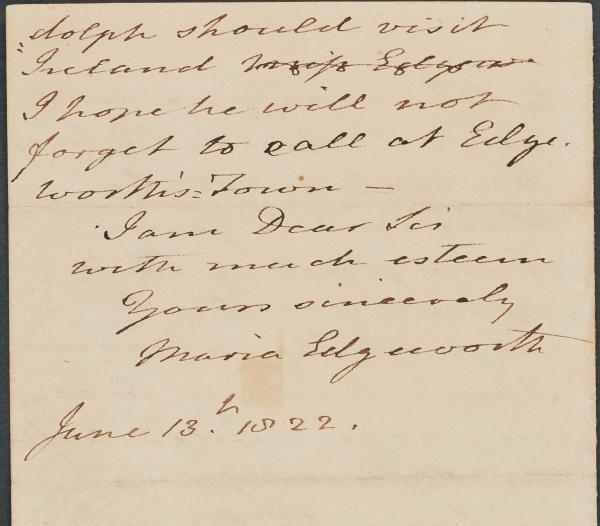 dolph should visit
Ireland Miss Edgew
I hope he will not
forget to call at Edge.
worth's=Town —
I am Dear Sir
with much esteem
Yours sincerely
Maria Edgeworth
June 13.th 1822.